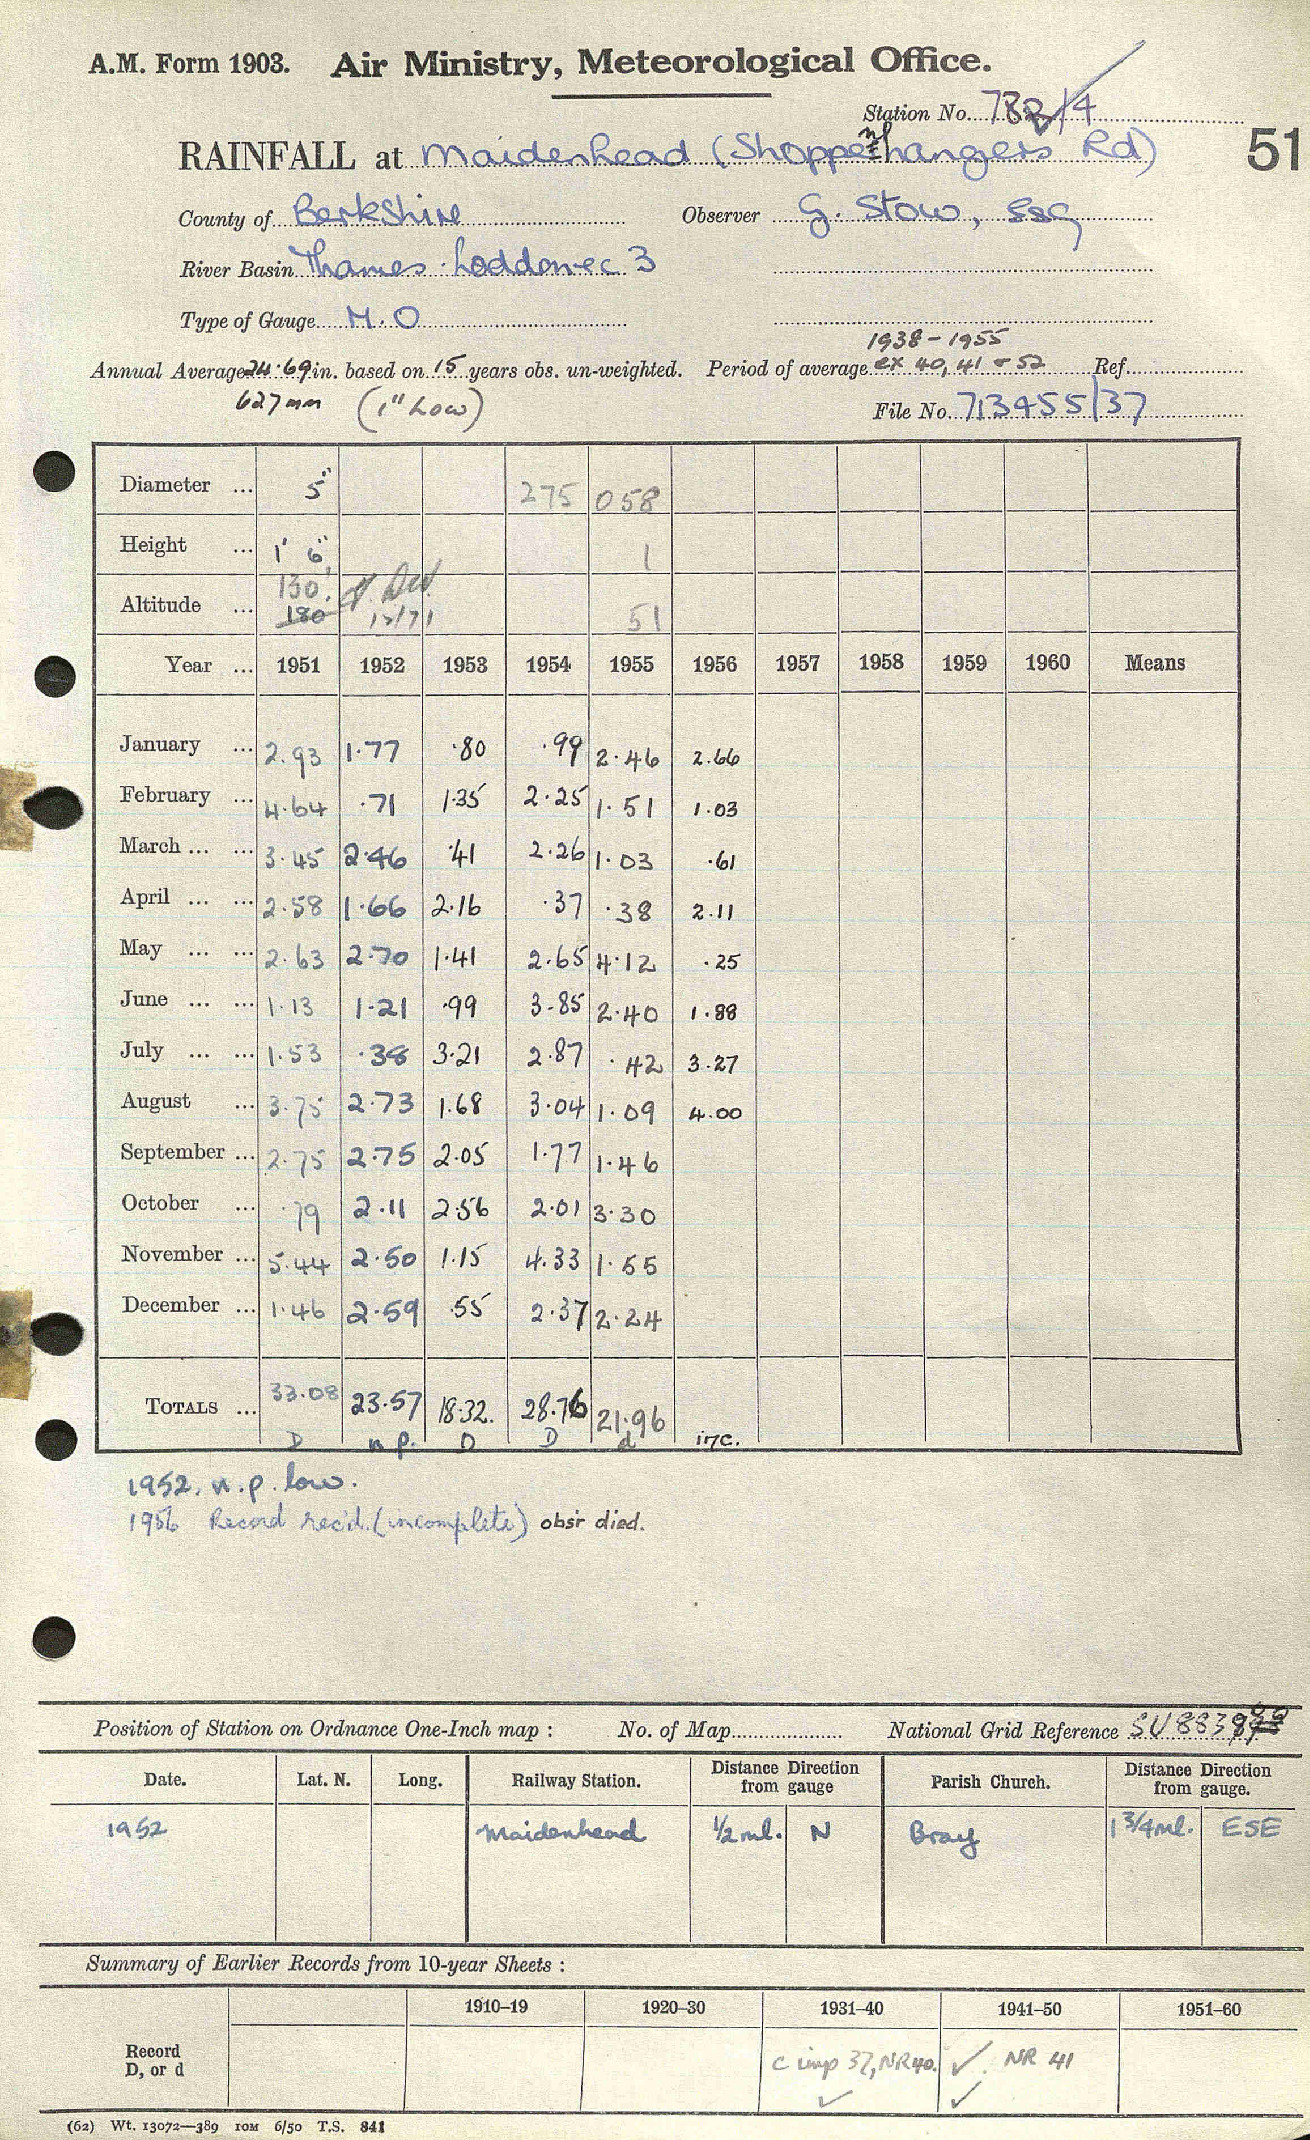 A.M. Form 1903. Air Ministry, Meteorological Office.
Station No. 78 /4
51
RAINFALL at Maidenhead (Shoppenhangers Rd)
County of Berkshire Observer G. Stow, Esq
River Basin Thames. Loddon-ec 3
Type of Gauge M.O
1938-1955
Annual Average 24.69 in. based on 15 years obs. un-weighted. Period of average ex 40, 41 & 52 Ref.
627mm (1" Low) File No. 713455/37
Diameter ... 5" 275 058
Height ... 1' 6" 1
130'
Altitude ... 180 12/71 51
Year ... 1951 1952 1953 1954 1955 1956 1957 1958 1959 1960 Means
January ... 2.93 1.77 .80 .99 2.46 2.66
February ... 4.64 .71 1.35 2.25 1.51 1.03
March ... ... 3.45 2.46 .41 2.26 1.03 .61
April ... ... 2.58 1.66 2.16 .37 .38 2.11
May ... ... 2.63 2.70 1.41 2.65 4.12 .25
June ... ... 1.13 1.21 .99 3.85 2.40 1.88
July ... ... 1.53 .38 3.21 2.87 .42 3.27
August ... 3.75 2.73 1.68 3.04 1.09 4.00
September ... 2.75 2.75 2.05 1.77 1.46
October ... .79 2.11 2.56 2.01 3.30
November ... 5.44 2.50 1.15 4.33 1.55
December ... 1.46 2.59 .55 2.37 2.24
TOTALS ... 33.08 23.57 18.32. 28.76 21.96
D n.p. D D d inc.
1952. n.p. low.
1956 Record rec'd. (incomplete) obsr died.
Position of Station on Ordnance One-Inch map : No. of Map National Grid Reference SU 883
Date. Lat. N. Long. Railway Station. Distance Direction from gauge Parish Church. Distance Direction from gauge.
1952 Maidenhead ½ ml. N Bray 1 ¾ ml. ESE
Summary of Earlier Records from 10-year Sheets :
1910–19 1920–30 1931–40 1941–50 1951–60
Record
D, or d
c imp 37, NR 40. ✓. NR 41
✓ ✓
(62) Wt. 13072—389 10M 6/50 T.S. 841